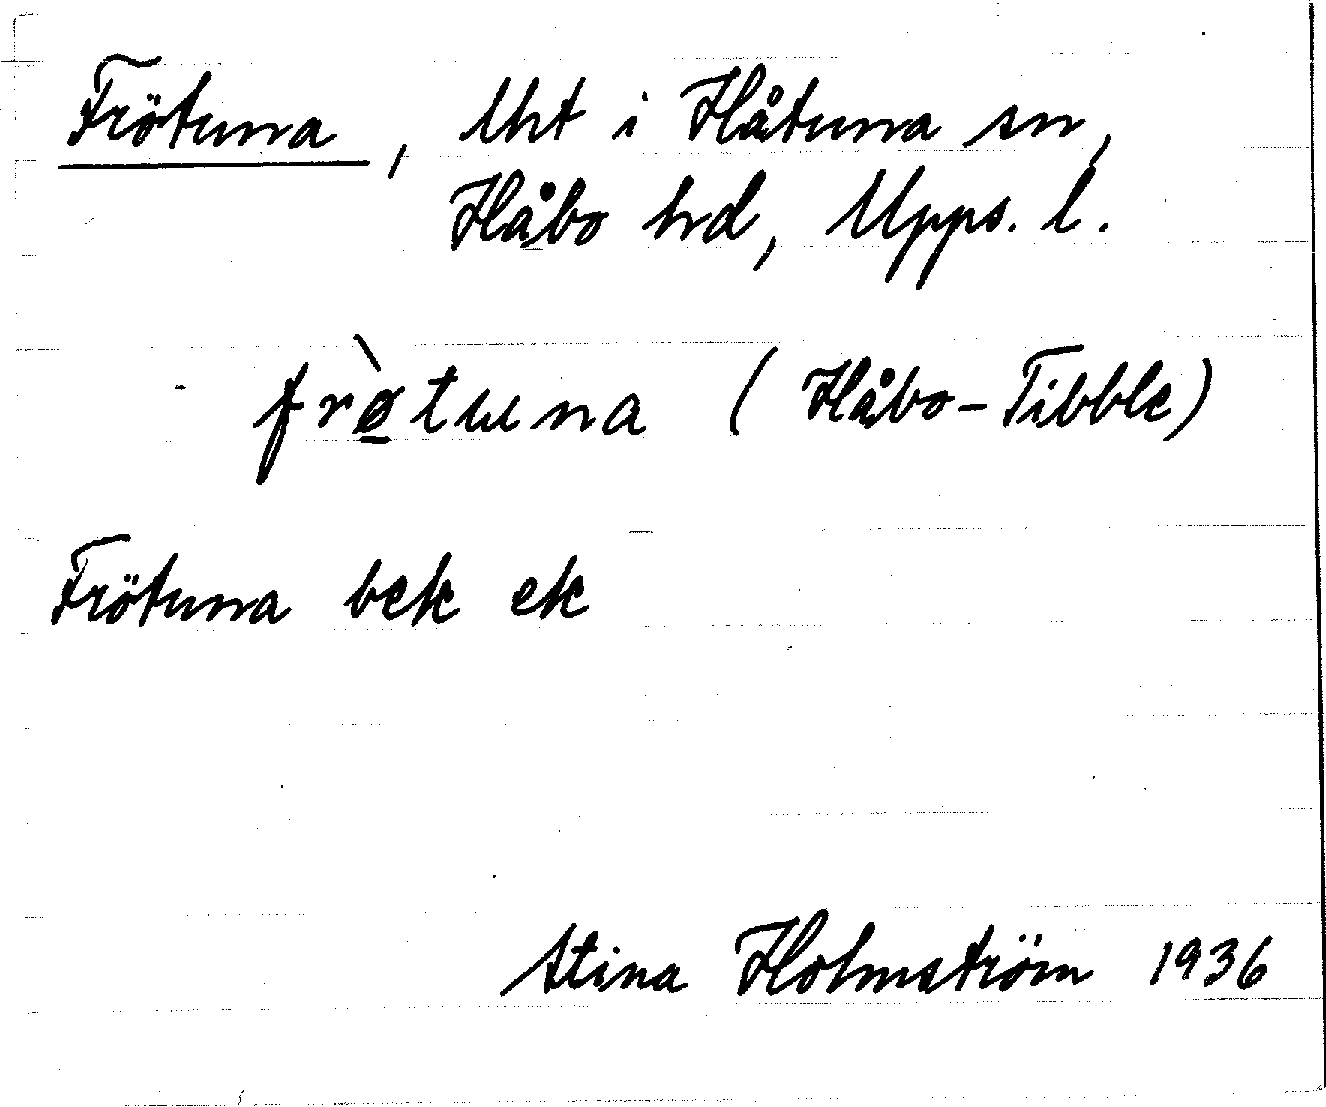 Frötuna, Uht i Håtuna sn,
Håbo hd, Upps. l.
frø̀tuna (Håbo-Tibble)
Frötuna bek ek
Stina Holmström 1936